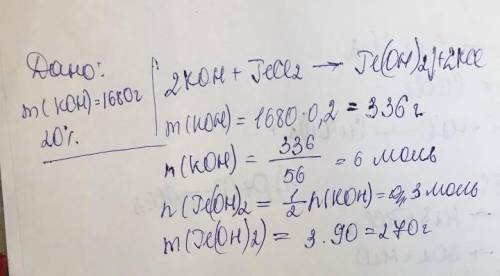 Дано:
m(KOH)=1680г
20%
2KOH + FeCl2 → Fe(OH)2↓+2KCl
m(KOH) = 1680·0,2 = 336 г
n(KOH) = 336/56 = 6 моль
n(Fe(OH)2 = 1/2 n(KOH) = 3 моль
m(Fe(OH)2) = 3·90=270г